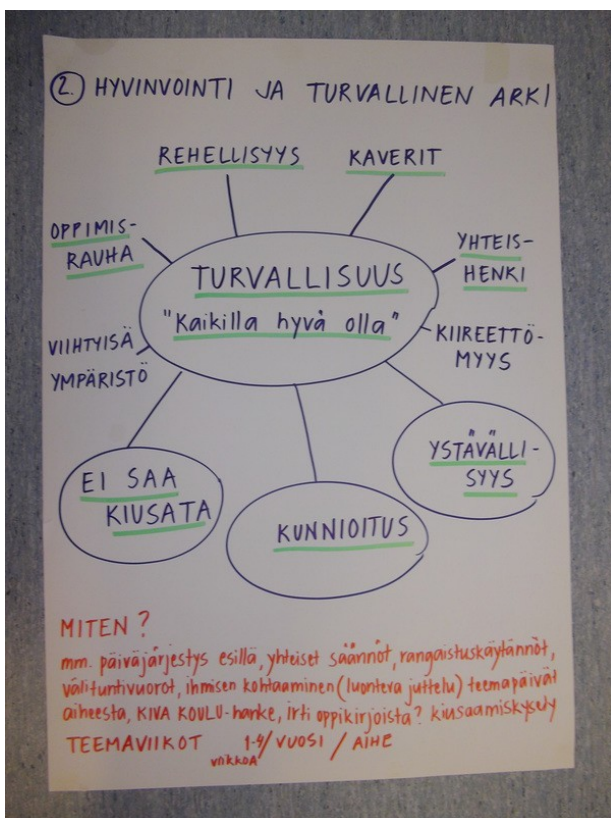 2. HYVINVOINTI JA TURVALLINEN ARKI
REHELLISYYS
KAVERIT
OPPIMIS-
RAUHA
YHTEIS-
HENKI
TURVALLISUUS
"Kaikilla hyvä olla"
VIIHTYISÄ
YMPÄRISTÖ
KIIREETTÖ-
MYYS
YSTÄVÄLLI-
SYYS
EI SAA
KIUSATA
KUNNIOITUS
MITEN?
mm. päiväjärjestys esillä, yhteiset säännöt, rangaistuskäytännöt,
välituntivuorot, ihmisen kohtaaminen (luonteva juttelu) teemapäivät
aiheesta, KIVA KOULU-hanke, irti oppikirjoista? kiusaamiskysely
TEEMAVIIKOT 1-4/VUOSI / AIHE
viikkoa